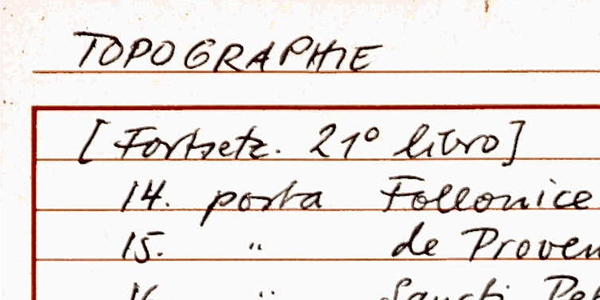 TOPOGRAPHIE
[Fortsetz. 21° libro]
14. porta Follonice
15. " de Proven
16. " Sancti Pet